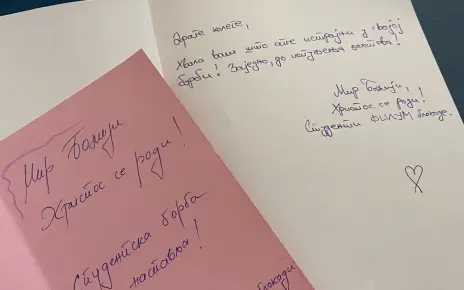 Драге колеге,
Хвала вам што сте истрајни у својој
борби! Заједно, до испуњења захтева!
Мир Божији,
Христос се роди!
Студенти ФИЛУМ блокаде.
Мир Божији
Христос се роди!
Студентска борба
наставља!
блокади